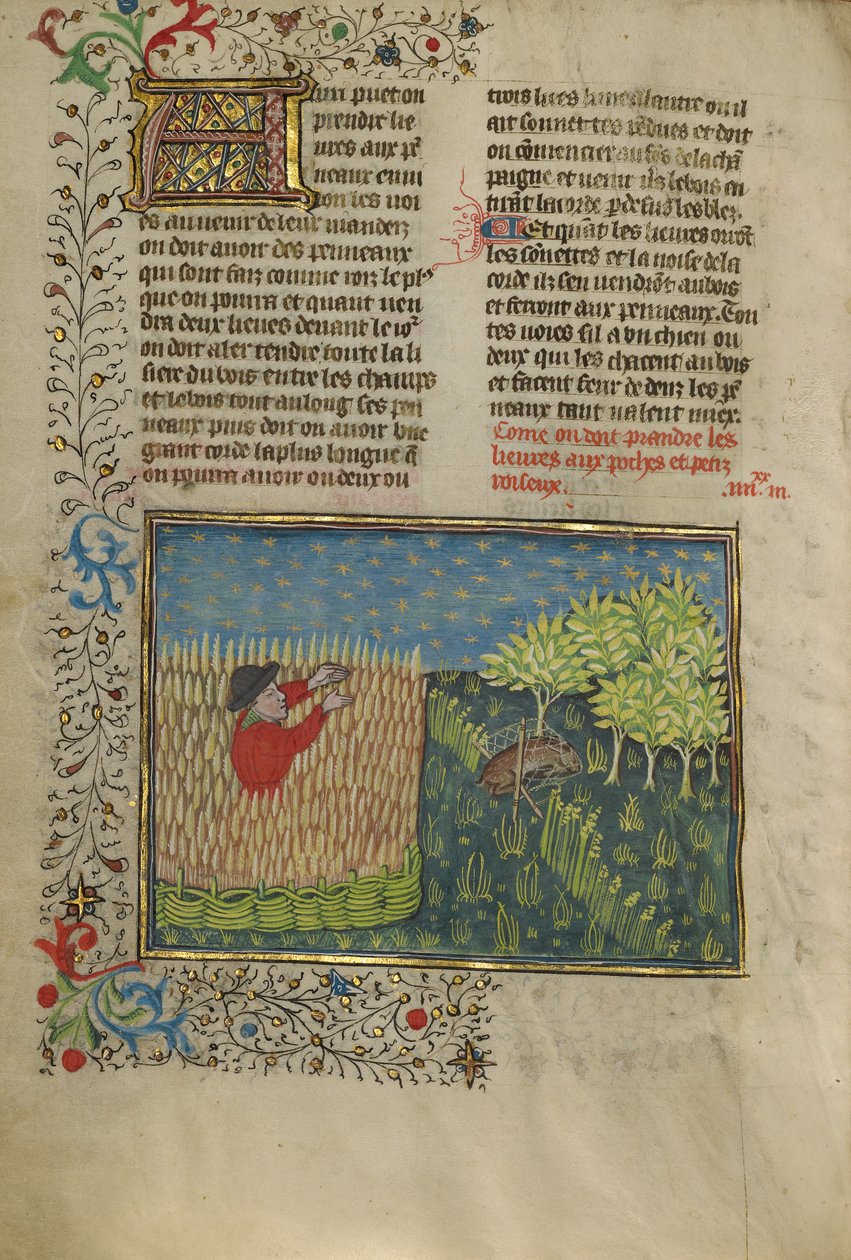 Aussi puet on
prendre lie
ures aux pē
neaux enui
ron les uoi
es au uenir de leur
on doit auoir des penneaux
qui sont faiz comme roiz le pl9
que on pourra et quant uen
dra deux lieues deuant le ior
on doit aler tendre toute la li
siere du bois entre les champs
et le bois tout au long ses pen
neaux puis doit on auoir une
grant corde la plus longue q̄
on pourra auoir ou deux ou
trois liees lune a lautre ou il
ait sonnettes pēdues et doit
on cōmencier au fōs de la chā
paigne et uenir uers le bois en
tirāt la corde p̱ dessus les blez.
Et quāt les lieures orrōt
les sōnettes et la noise de la
corde ilz sen uendrōt au bois
et ferront aux penneaux. Tou
tes uoies sil a un chien ou
deux qui les chacent au bois
et facent feur de deuz les pē
neaux tant ualent miex.
Come on doit prandre les
lieures aux poches et petiz
roiseux. .iiii.xx iii.